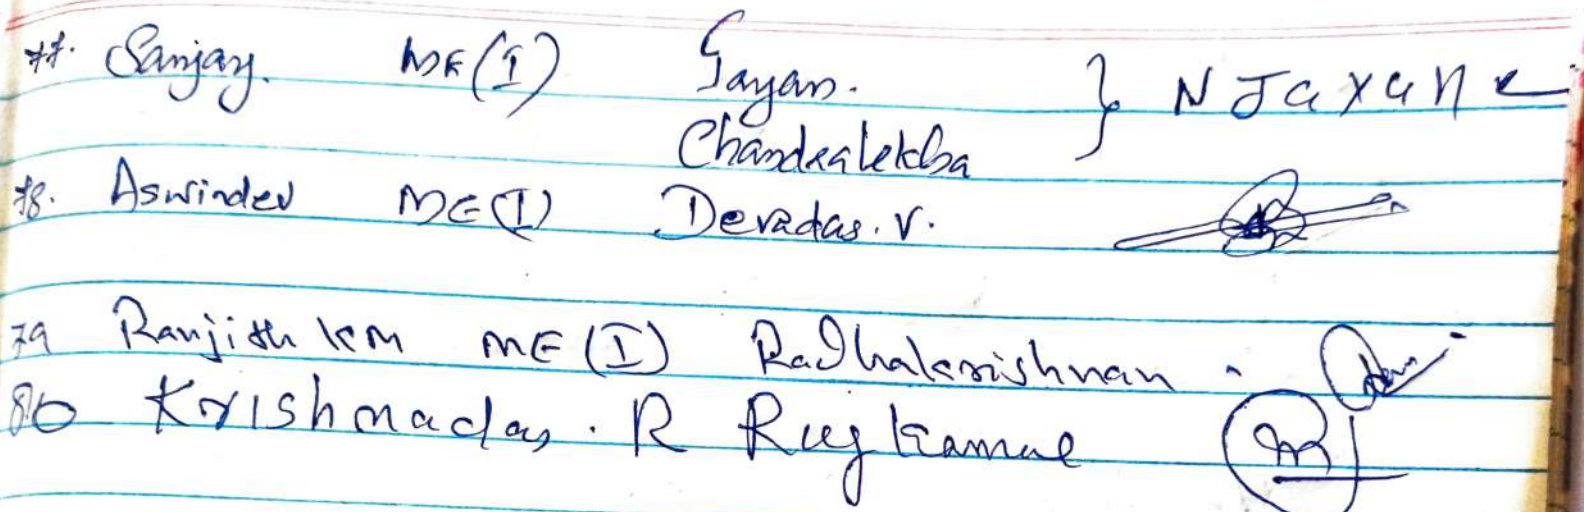 77. Sanjay. ME(I) Jayan. } N Jayan
Chandralekha
78. Aswindev ME(I) Devadas. V.
79 Ranjith KM ME (I) Radhakrishnan
80 Krishnadas. R Rajkamal